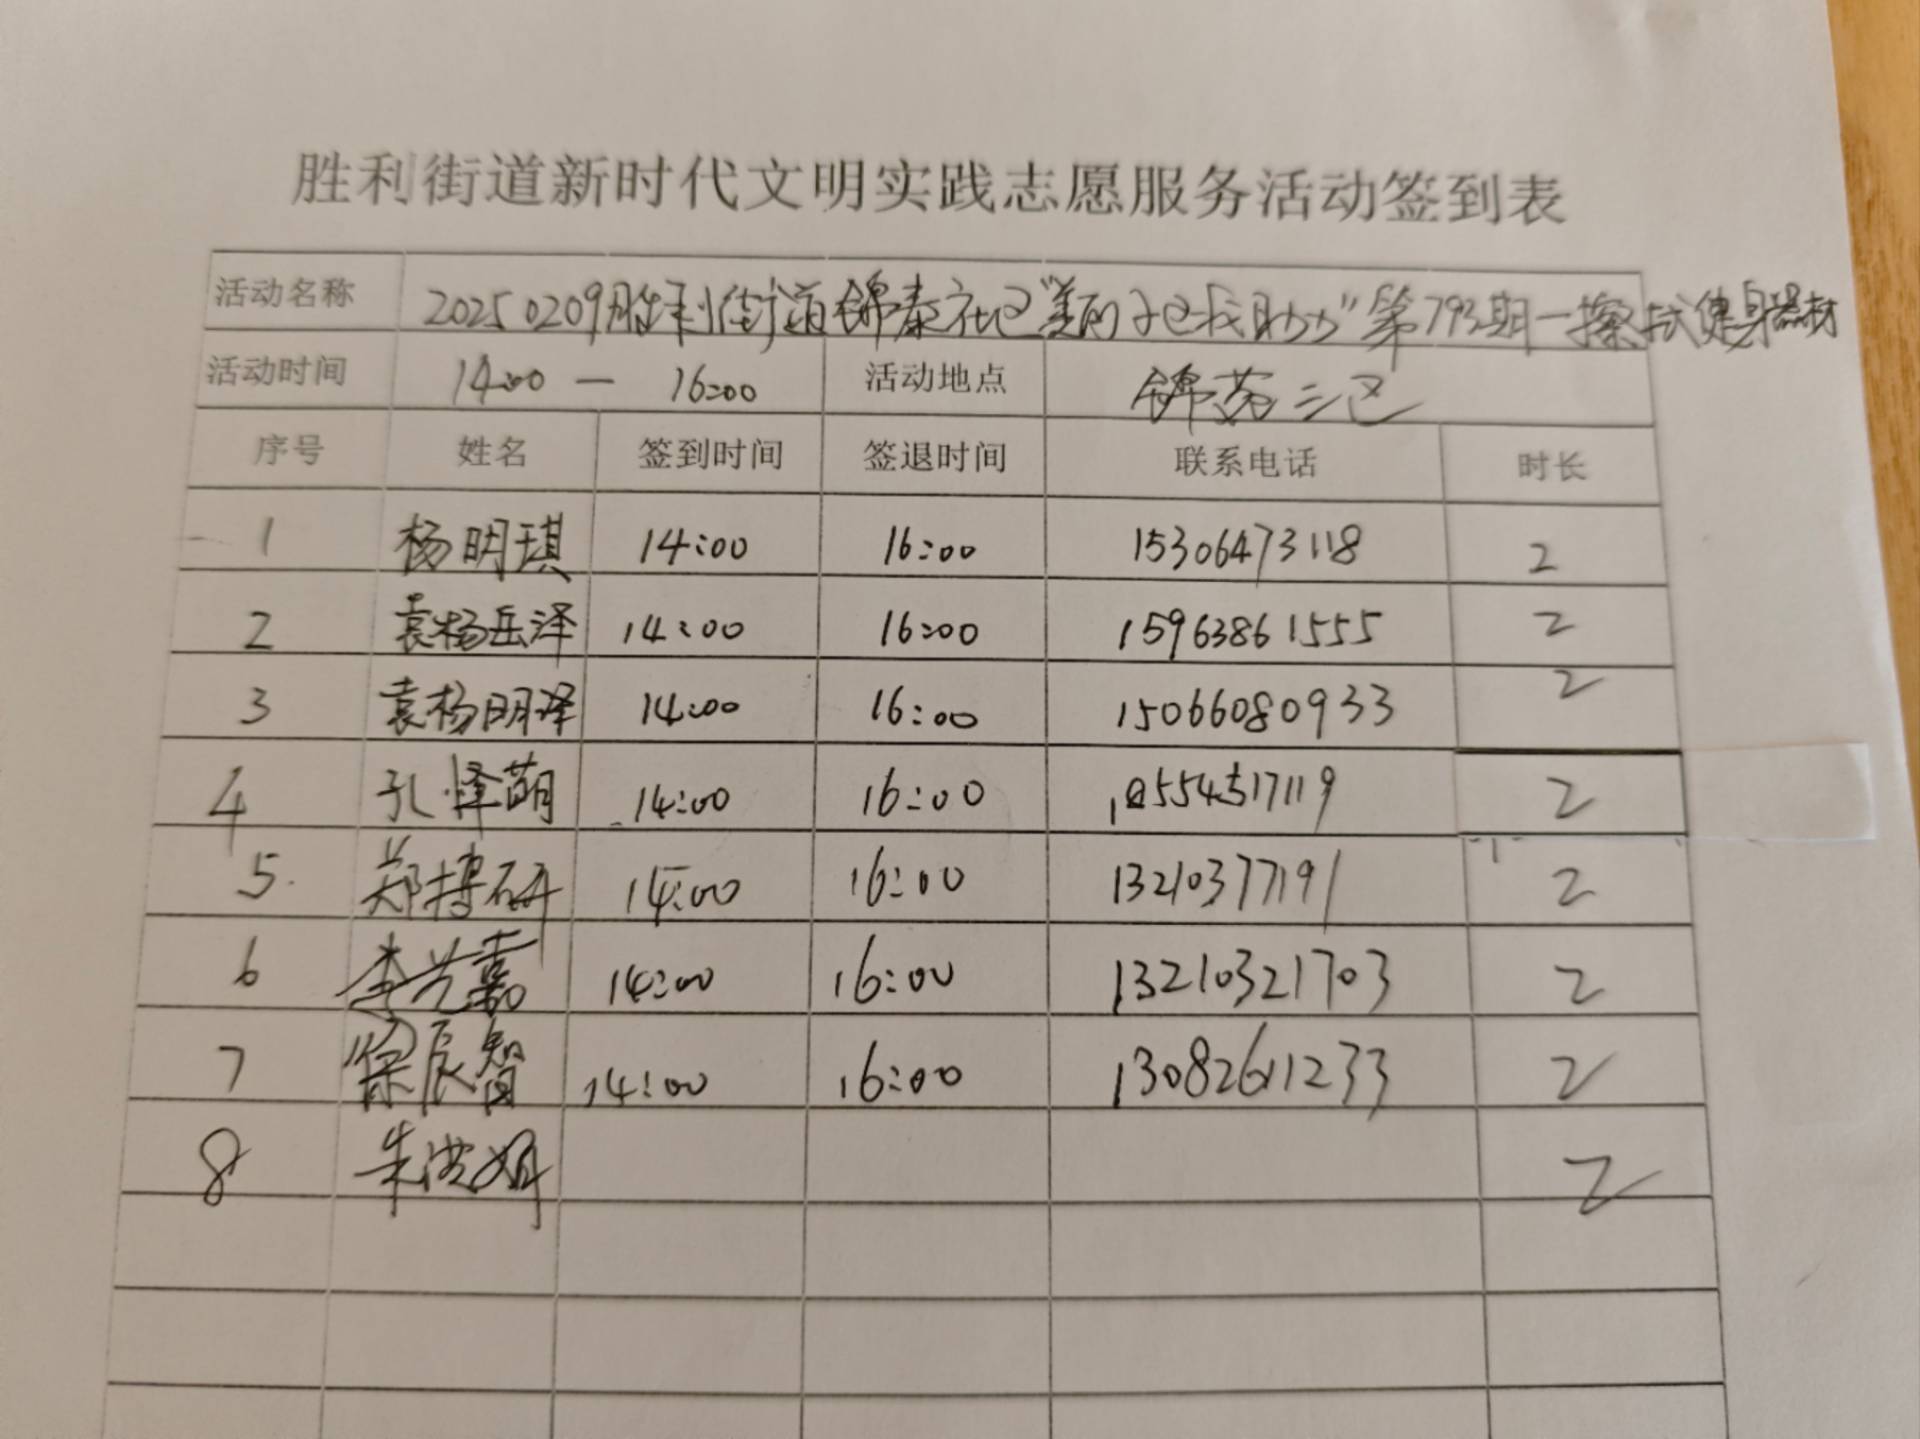 胜利街道新时代文明实践志愿服务活动签到表
活动名称 20250209胜利街道锦泰社区"美丽小区我助力"第793期—擦拭健身器材
活动时间 14:00 — 16:00 活动地点 锦苑三区
序号 姓名 签到时间 签退时间 联系电话 时长
1 杨明琪 14:00 16:00 15306473118 2
2 袁杨岳泽 14:00 16:00 15963861555 2
3 袁杨明泽 14:00 16:00 15066080933 2
4 孔怿萌 14:00 16:00 2
5. 郑博研 14:00 16:00 13210377191 2
6 李兴嘉 14:00 16:00 13210321703 2
7 梁辰智 14:00 16:00 13082611233 2
8 朱洪娟 2